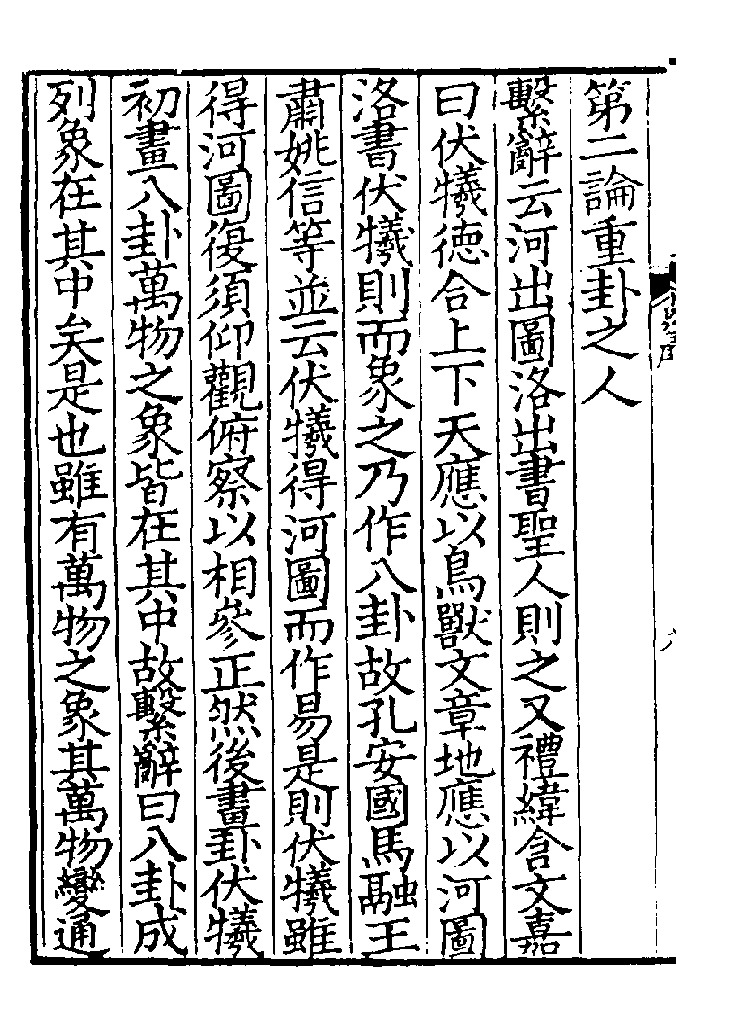 第二論重卦之人
繫辭云河出圖洛出書聖人則之又禮緯含文嘉
曰伏犧德合上下天應以鳥獸文章地應以河圖
洛書伏犧則而象之乃作八卦故孔安國馬融王
肅姚信等並云伏犧得河圖而作易是則伏犧雖
得河圖復須仰觀俯察以相參正然後畫卦伏犧
初畫八卦萬物之象皆在其中故繫辭曰八卦成
列象在其中矣是也雖有萬物之象其萬物變通